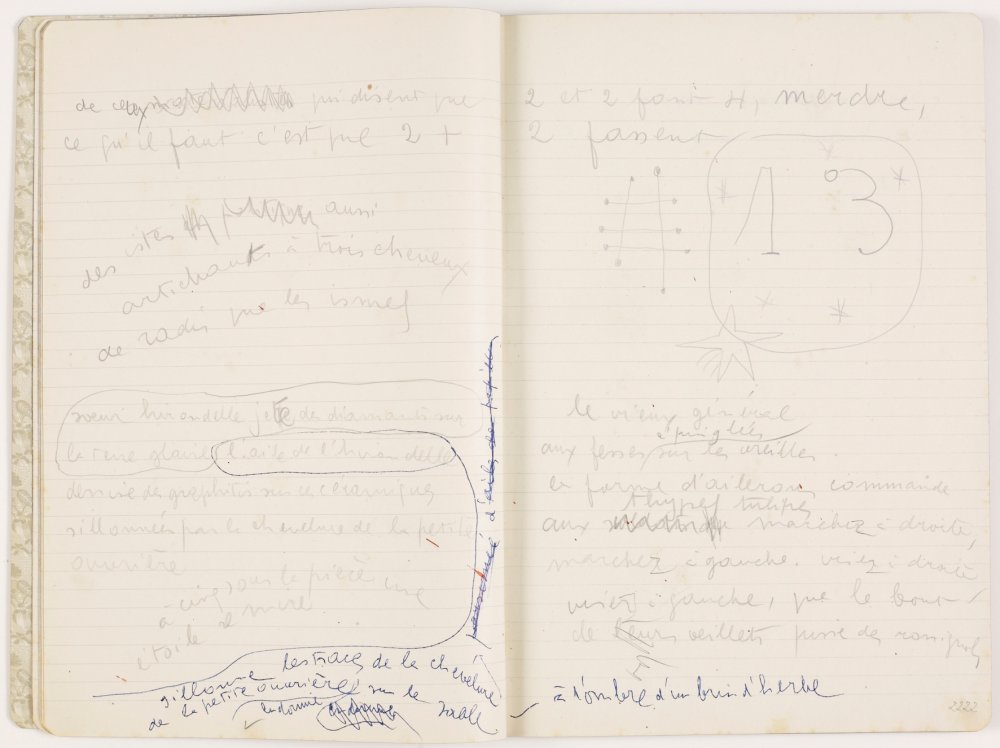 de ces qui disent que
ce qu'il faut c'est que 2 +
des istes aussi
artichauts à trois cheveux
de radis que les ismes
soeur hirondelle jette des diamants sur
la reine glaise l'aile de l'hirondelle
dessine des graphitis sur ces céramiques
sillonnées par la chevelure de la petite
ouvrière
à cinq sous la pièce cinq
étoile
sillonne les traces de la chevelure
de la petite ouvrière sur le sable
endormie
d'ailes de
2 et 2 font 4, merdre,
2 fassent
13
le vieux général
aux fesses épinglées sur les oreilles
en forme d'ailerons commande
aux tulipes marchez à droite,
marchez à gauche. virez à droite
virez à gauche, que le bout
de oeillets puisse des rossignols
à l'ombre d'un brin d'herbe
2222